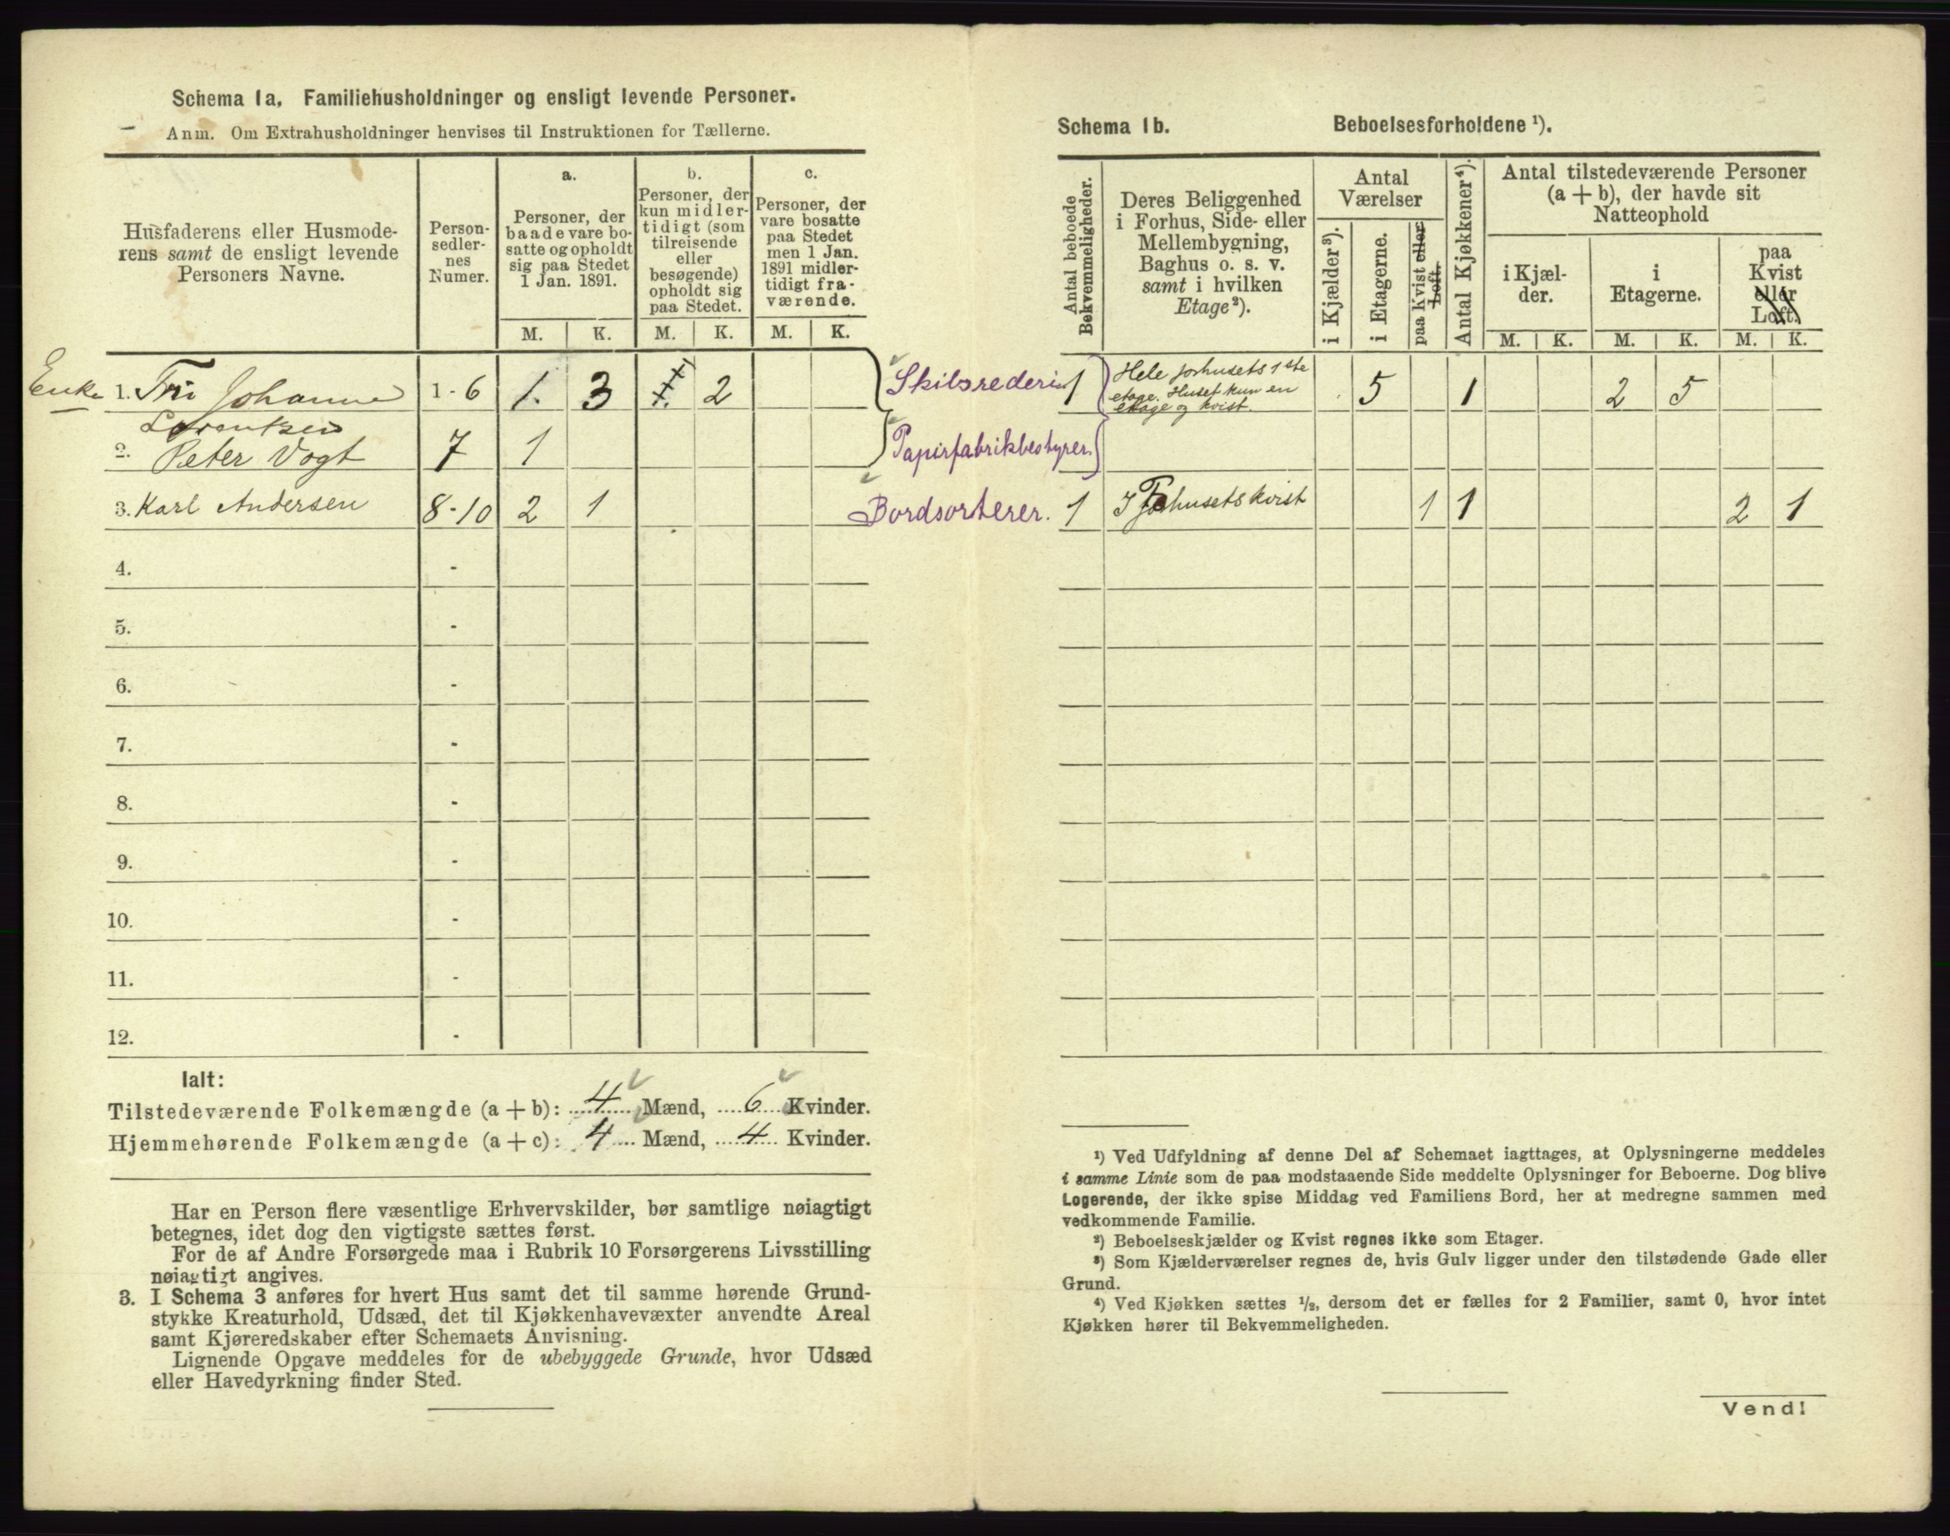 Schema 1a. Familiehusholdninger og ensligt levende Personer.
Anm. Om Extrahusholdninger henvises til Instruktionen for Tællerne.
Husfaderens eller Husmode-
rens samt de ensligt levende
Personers Navne.
Person-
sedler-
nes
Numer.
a.
Personer, der
baade vare bo-
satte og opholdt
sig paa Stedet
1 Jan. 1891.
M. K.
b.
Personer, der
kun midler-
tidigt (som
tilreisende
eller
besøgende)
opholdt sig
paa Stedet.
M. K.
c.
Personer, der
vare bosatte
paa Stedet
men 1 Jan.
1891 midler-
tidigt fra-
værende.
M. K.
Enke 1. Fru Johanne 1-6 1. 3 2 Skibsrederi
Lorentzen
2. Peter Vogt 7 1 Papirfabrikbestyrer
3. Karl Andersen 8-10 2 1 Bordsorterer.
4. -
5. -
6. -
7. -
8. -
9. -
10. -
11. -
12. -
Ialt:
Tilstedeværende Folkemængde (a + b): 4 Mænd, 6 Kvinder.
Hjemmehørende Folkemængde (a + c): 4 Mænd, 4 Kvinder.
Har en Person flere væsentlige Erhvervskilder, bør samtlige nøiagtigt
betegnes, idet dog den vigtigste sættes først.
For de af Andre Forsørgede maa i Rubrik 10 Forsørgerens Livsstilling
nøiagtigt angives.
3. I Schema 3 anføres for hvert Hus samt det til samme hørende Grund-
stykke Kreaturhold, Udsæd, det til Kjøkkenhavevæxter anvendte Areal
samt Kjøreredskaber efter Schemaets Anvisning.
Lignende Opgave meddeles for de ubebyggede Grunde, hvor Udsæd
eller Havedyrkning finder Sted.
Schema 1b. Beboelsesforholdene ¹).
Antal beboede
Bekvemmeligheder.
Deres Beliggenhed
i Forhus, Side- eller
Mellembygning,
Baghus o. s. v.
samt i hvilken
Etage²).
Antal
Værelser
i Kjælder³).
i Etagerne.
paa Kvist eller
Loft.
Antal Kjøkkener⁴).
Antal tilstedeværende Personer
(a + b), der havde sit
Natteophold
i Kjæl-
der.
M. K.
i
Etagerne.
M. K.
paa
Kvist
eller
Loft.
M. K.
1 Hele forhusets 1ste 5 1 2 5
etage. Huset kun en
etage og kvist.
1 I Forhusets kvist 1 1 2 1
¹) Ved Udfyldning af denne Del af Schemaet iagttages, at Oplysningerne meddeles
i samme Linie som de paa modstaaende Side meddelte Oplysninger for Beboerne. Dog blive
Logerende, der ikke spise Middag ved Familiens Bord, her at medregne sammen med
vedkommende Familie.
²) Beboelseskjælder og Kvist regnes ikke som Etager.
³) Som Kjælderværelser regnes de, hvis Gulv ligger under den tilstødende Gade eller
Grund.
⁴) Ved Kjøkken sættes ½, dersom det er fælles for 2 Familier, samt 0, hvor intet
Kjøkken hører til Bekvemmeligheden.
Vend!